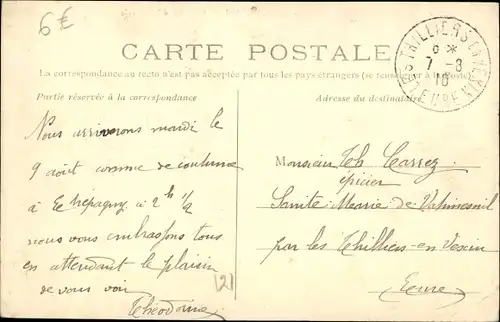 6€
CARTE POSTALE
La correspondance au recto n'est pas acceptée par tous les pays étrangers (se renseigner à la Poste)
Partie réservée à la correspondance
Adresse du destinataire
THILLIERS-EN-VEXIN
EURE
6 *
7 - 8
10
Nous arriverons mardi le
9 août comme de coutume
à Etrépagny à 2 h 1/2
nous vous embrassons tous
en attendant le plaisir
de vous voir
Théodorine
(2)
Monsieur Th Carrez
épicier
Sainte Marie de Vatimesnil
par les Thilliers-en-Vexin
Eure